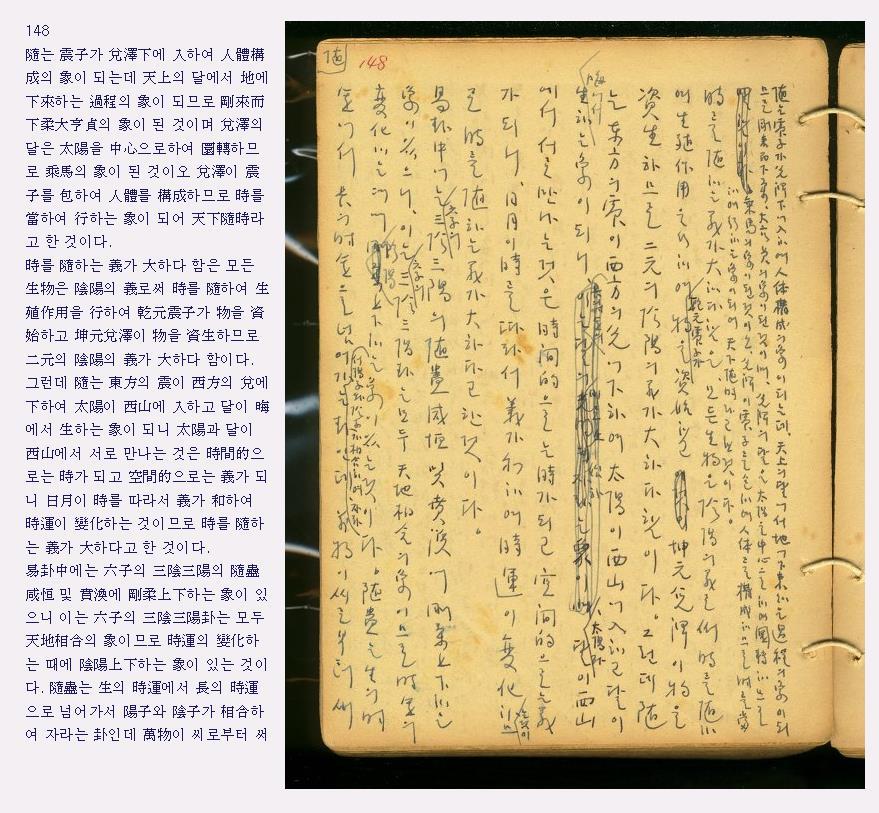 148
隨는 震子가 兌澤下에 入하여 人體構
成의 象이 되는데 天上의 달에서 地에
下來하는 過程의 象이 되므로 剛來而
下柔大亨貞의 象이 된 것이며 兌澤의
달은 太陽을 中心으로하여 圜轉하므
로 乘馬의 象이 된 것이오 兌澤이 震
子를 包하여 人體를 構成하므로 時를
當하여 行하는 象이 되어 天下隨時라
고 한 것이다.
時를 隨하는 義가 大하다 함은 모든
生物은 陰陽의 義로써 時를 隨하여 生
殖作用을 行하여 乾元震子가 物을 資
始하고 坤元兌澤이 物을 資生하므로
二元의 陰陽의 義가 大하다 함이다.
그런데 隨는 東方의 震이 西方의 兌에
下하여 太陽이 西山에 入하고 달이 晦
에서 生하는 象이 되니 太陽과 달이
西山에서 서로 만나는 것은 時間的으
로는 時가 되고 空間的으로는 義가 되
니 日月이 時를 따라서 義가 和하여
時運이 變化하는 것이므로 時를 隨하
는 義가 大하다고 한 것이다.
易卦中에는 六子의 三陰三陽의 隨蠱
咸恒 및 賁渙에 剛柔上下하는 象이 있
으니 이는 六子의 三陰三陽卦는 모두
天地相合의 象이므로 時運의 變化하
는 때에 陰陽上下하는 象이 있는 것이
다. 隨蠱는 生의 時運에서 長의 時運
으로 넘어가서 陽子와 陰子가 相合하
여 자라는 卦인데 萬物이 씨로부터 써
隨
148
隨는 震子가 兌澤下에 入하여 人体構成의 象이 되는데, 天上의 달에서 地에 下來하는 過程의 象이 되
므로 剛來而下柔, 大亨貞의 象이 된 것이며, 兌澤의 달은 太陽을 中心으로하여 圜轉하므로
乘馬의 象이 된 것이오 兌澤이 震子를 包하여 人体를 構成하므로 時를 當
하여 行하는 象이 되어 天下隨時라고 한 것이다.
時를 隨하는 義가 大하다 함은 모든 生物은 陰陽의 義로써 時를 隨하
여 生殖作用을 行하여 乾元震子가 物을 資始하고 坤元兌澤이 物을
資生하므로 二元의 陰陽의 義가 大하다 함이다. 그런데 隨
는 東方의 震이 西方의 兌에 下하여 太陽이 西山에 入하고 달이
晦에서 生하는 象이 되니 太陽과 달이 西山
에서 서로 만나는 것은 時間的으로는 時가 되고 空間的으로는 義
가 되니, 日月이 時를 따라서 義가 和하여 時運이 變化하는 것이므
로 時를 隨하는 義가 大하다고 한 것이다.
易卦中에는 六子의 三陰三陽의 隨蠱咸恒 및 賁渙에 剛柔上下하는
象이 있으니, 이는 六子의 三陰三陽卦는 모두 天地相合의 象이므로 時運의
變化하는 때에 陰陽上下하는 象이 있는 것이다. 隨蠱는 生의 時
運에서 長의 時運으로 넘어가서 陽子와 陰子가 相合하여 자라는 卦인데 萬物이 씨로부터 써